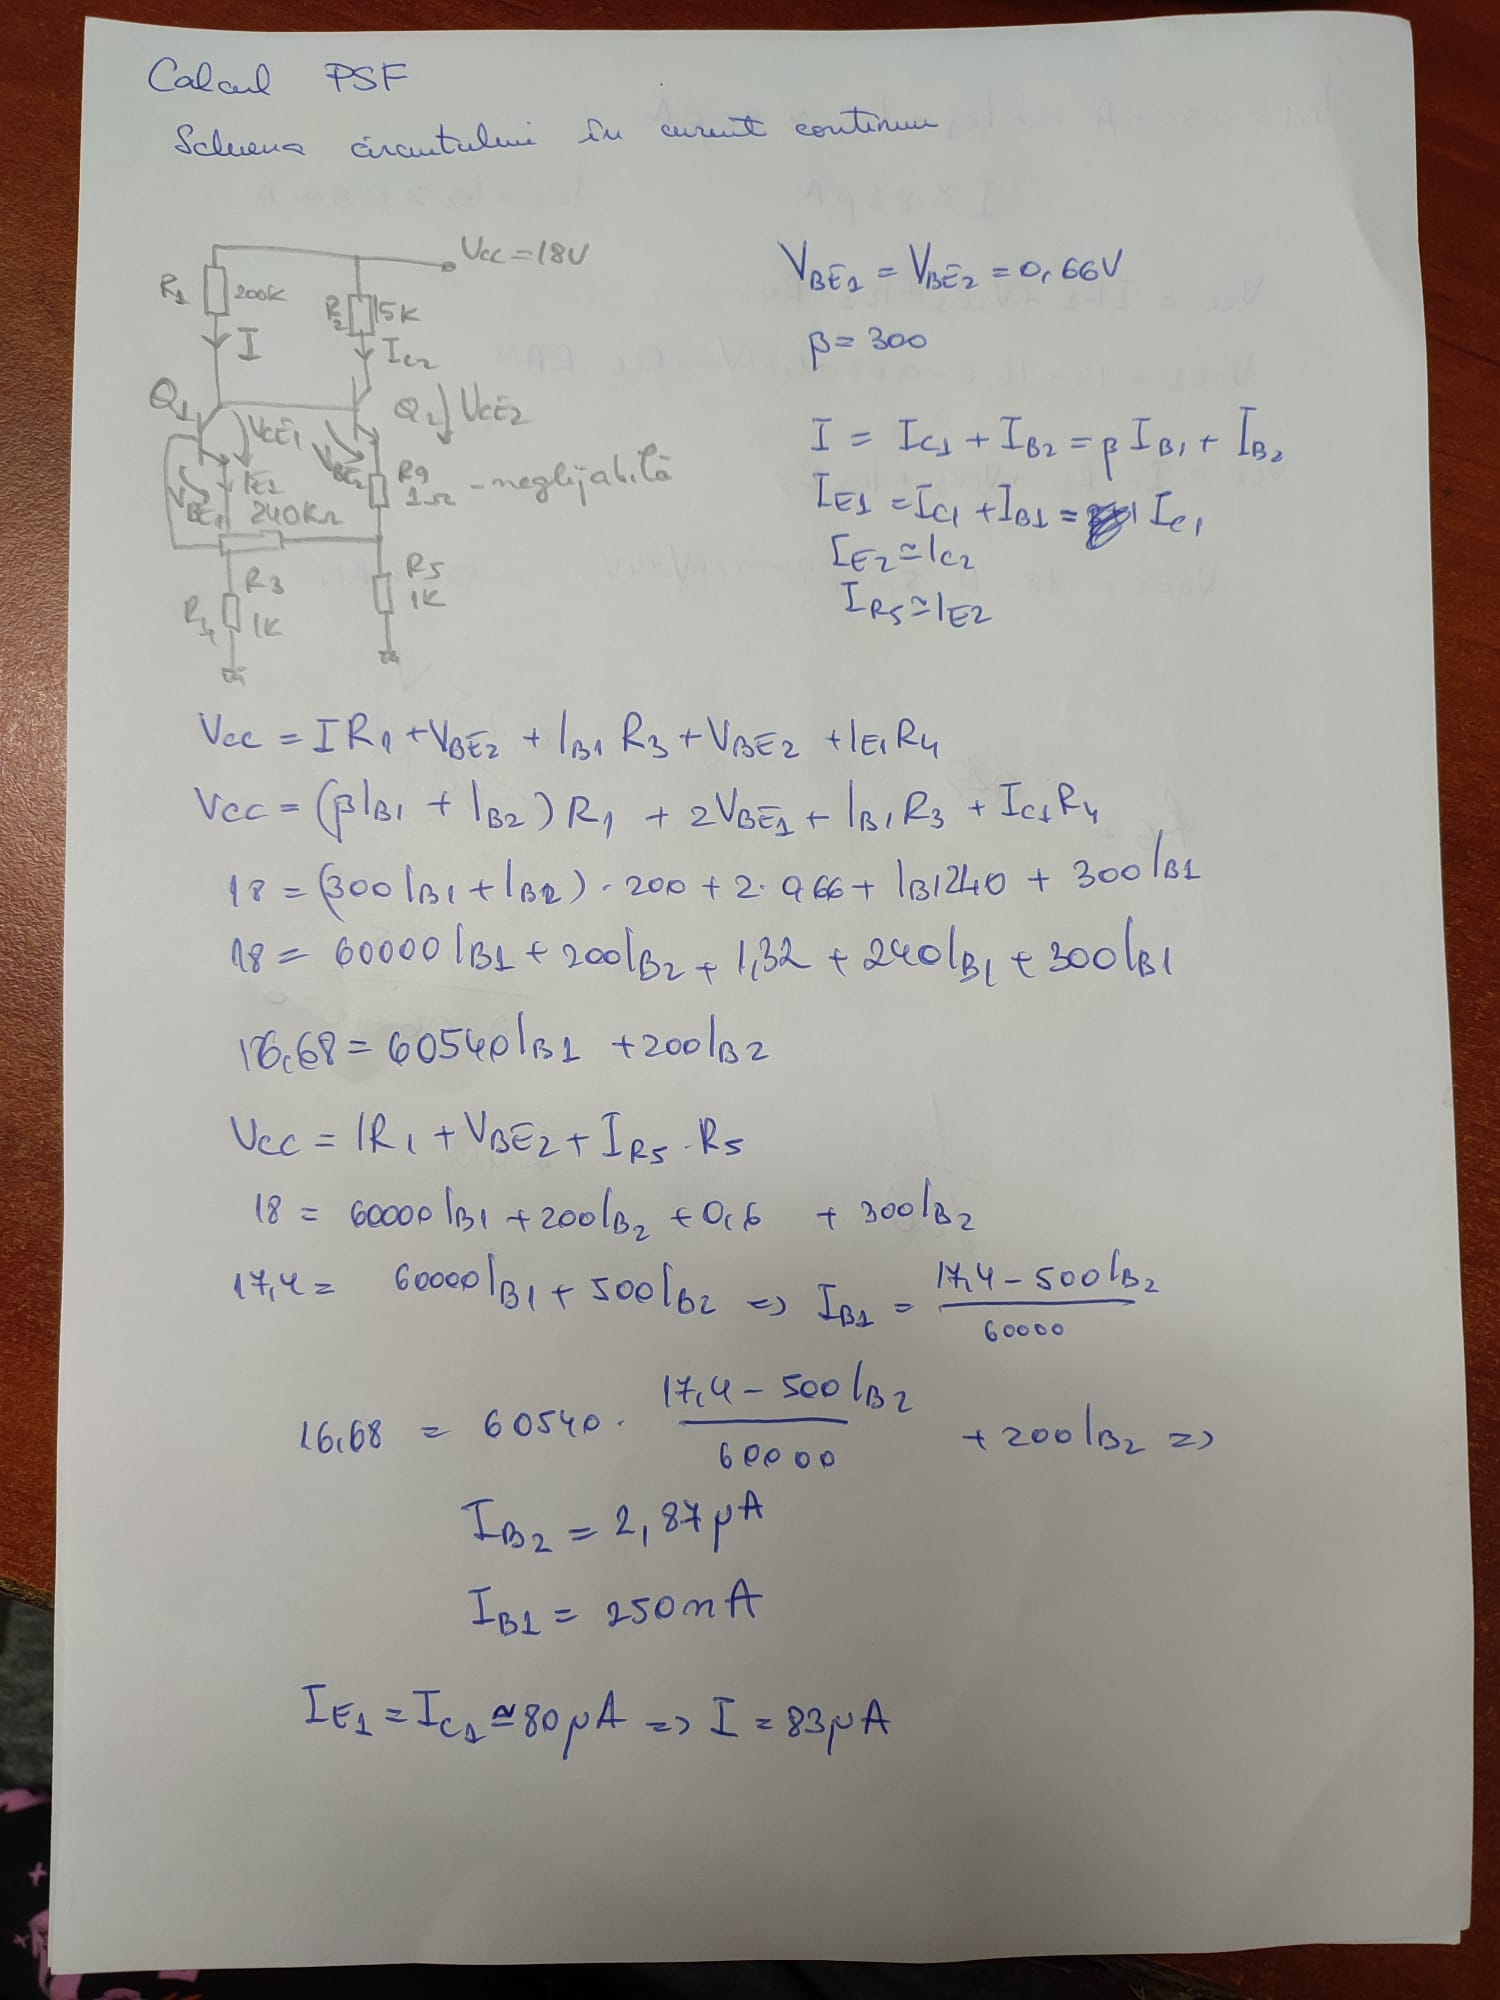 Calcul PSF
Schema circuitului în curent continuu
Vcc = 18V
R1 200k
R2 15K
I
IC2
Q1
Q2
VCE1
VCE2
VBE2
IE1
VBE1
R9
1Ω - neglijabilă
240KΩ
R3
R4 1K
R5
1K
VBE1 = VBE2 = 0,66V
β = 300
I = IC1 + IB2 = β IB1 + IB2
IE1 = IC1 + IB1 = IC1
IE2 ≃ IC2
IR5 ≃ IE2
Vcc = I R1 + VBE2 + IB1 R3 + VBE2 + IE1 R4
Vcc = (βIB1 + IB2) R1 + 2VBE1 + IB1 R3 + IC1 R4
18 = (300 IB1 + IB2) · 200 + 2 · 0,66 + IB1 240 + 300 IB1
18 = 60000 IB1 + 200 IB2 + 1,32 + 240 IB1 + 300 IB1
16,68 = 60540 IB1 + 200 IB2
Vcc = I R1 + VBE2 + IR5 · R5
18 = 60000 IB1 + 200 IB2 + 0,6 + 300 IB2
17,4 = 60000 IB1 + 500 IB2 => IB1 = (17,4 - 500 IB2) / 60000
16,68 = 60540 · (17,4 - 500 IB2) / 60000 + 200 IB2 =>
IB2 = 2,87 µA
IB1 = 250 nA
IE1 = IC1 ≅ 80 µA => I = 83 µA